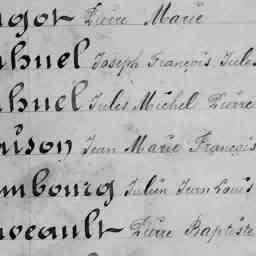 ngot Pierre Marie
ahuel Joseph François Jules
ahuel Jules Michel Pierre
aison Jean Marie François
ambourg Julien Jean Louis
uveault Pierre Baptiste